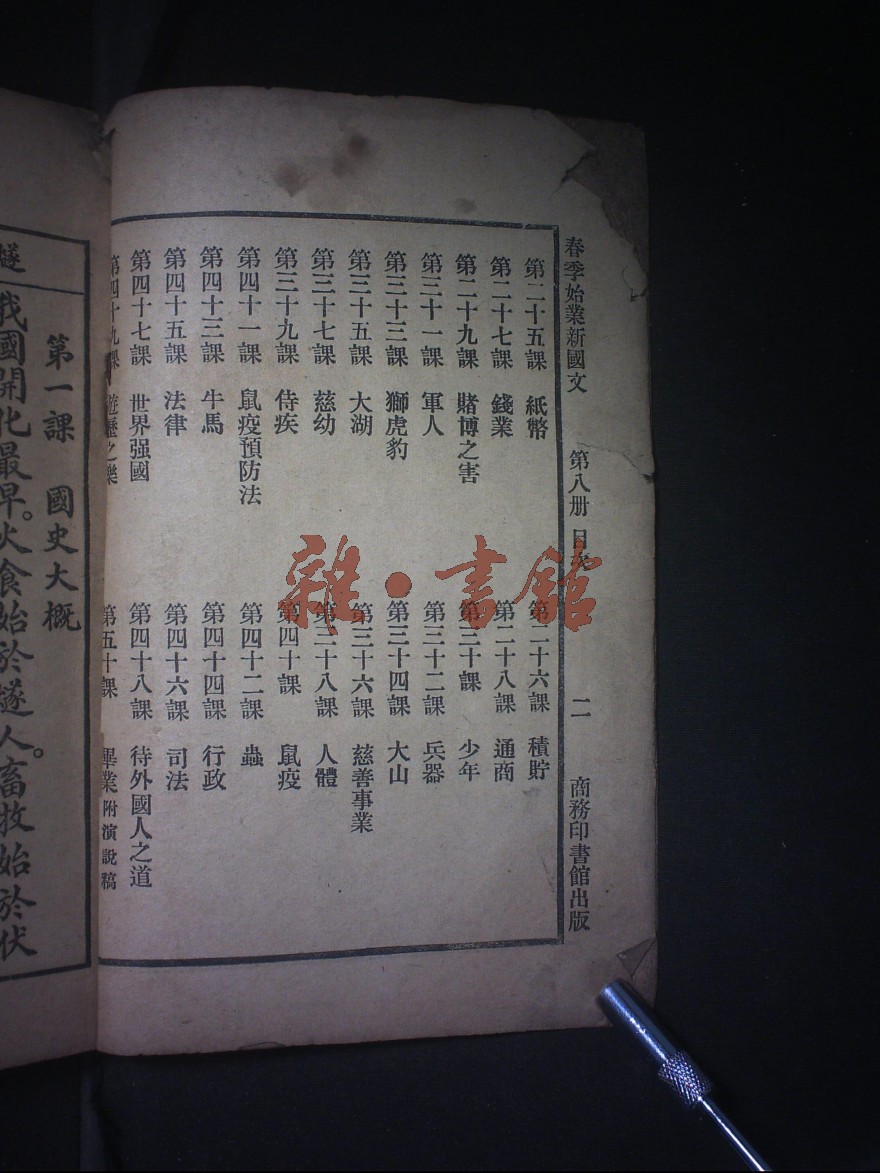 春季始業新國文 第八册 目次 二 商務印書館出版
第二十五課 紙幣 第二十六課 積貯
第二十七課 錢業 第二十八課 通商
第二十九課 賭博之害 第三十課 少年
第三十一課 軍人 第三十二課 兵器
第三十三課 獅虎豹 第三十四課 大山
第三十五課 大湖 第三十六課 慈善事業
第三十七課 慈幼 第三十八課 人體
第三十九課 侍疾 第四十課 鼠疫
第四十一課 鼠疫預防法 第四十二課 蟲
第四十三課 牛馬 第四十四課 行政
第四十五課 法律 第四十六課 司法
第四十七課 世界强國 第四十八課 待外國人之道
第四十九課 遊歷之樂 第五十課 畢業附演說稿
第一課 國史大概
我國開化最早。火食始於燧人。畜牧始於伏
燧
雜·書館